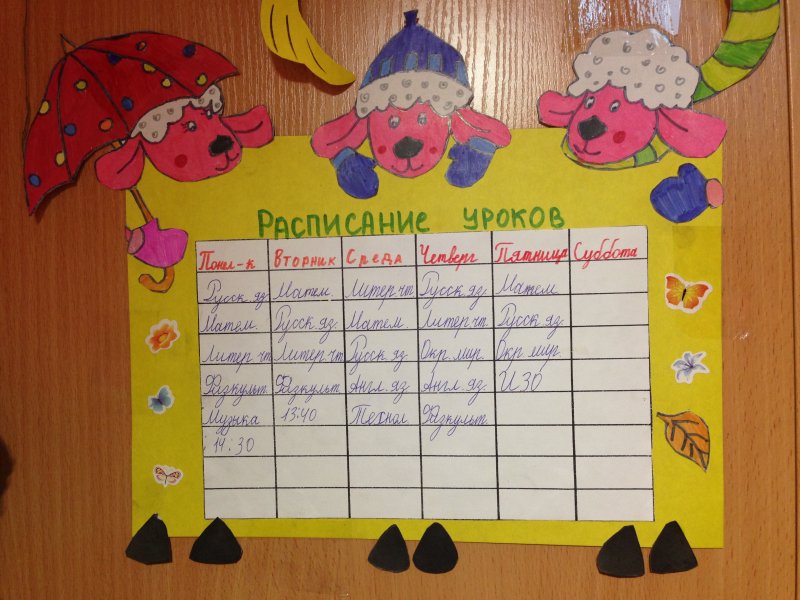 РАСПИСАНИЕ УРОКОВ
Понед-к Вторник Среда Четверг Пятница Суббота
Русск. яз. Матем. Литер. чт. Русск. яз. Матем.
Матем. Русск. яз. Матем. Литер. чт. Русск. яз.
Литер. чт. Литер. чт. Русск. яз. Окр. мир. Окр. мир.
Физкульт. Физкульт. Англ. яз. Англ. яз. ИЗО
Музыка 13:40 Технол. Физкульт.
14:30